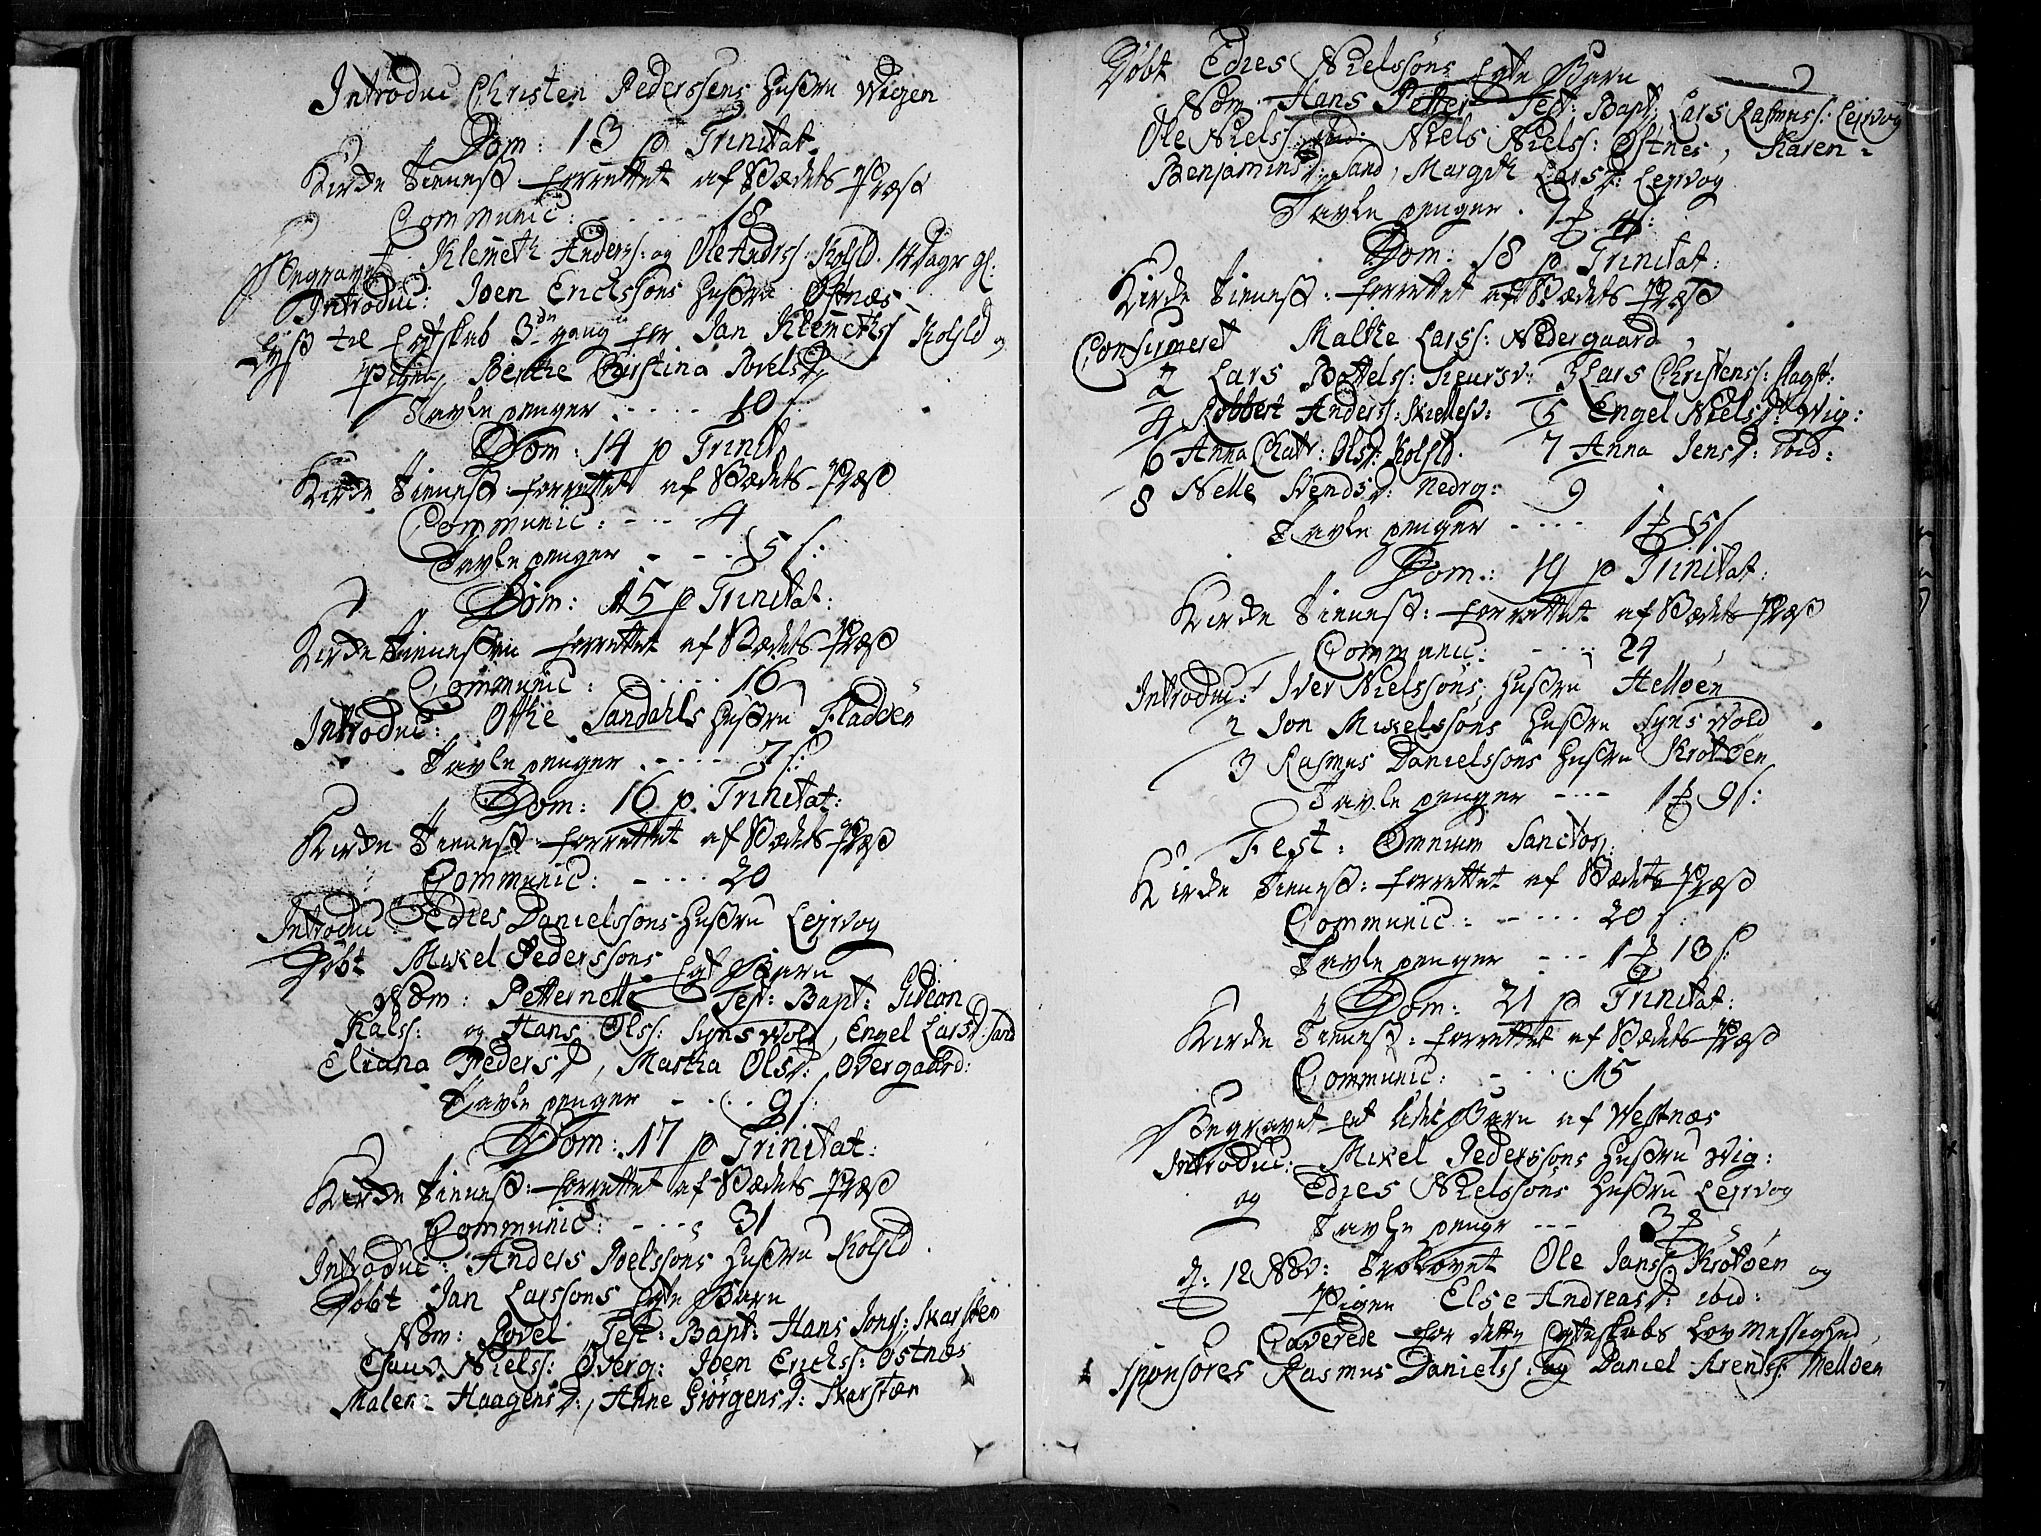 Introduc Christen Pederssens Hustru Wigen
Dom: 13 p Trinitat.
Kirke Tienest forrettet af Stædets Præst
Communic: - - - - 18
Begravet Klemeth Anders: og Ole Andrs: Kolsld. 14 dage gl:
Introduc: Joen Erichssöns Hustru Östnæs
Lyst til Egtskab 3die gang for Jan Klemethss Kolsld og
Pigen Berthe Kirstina Povelsd
Tavle penger - - - - 10 s:
Dom: 14 p Trinit
Kirke Tienest forrettet af Stædets Præst
Communic: - - - 4
Tavle penger - - - 5 s:
Dom: 15 p Trinitat:
Kirke Tienesten forrettet af Stædets Præst
Communic: - - - - - 16
Introduc: Othe Sandahls Hustru Fladöen
Tavle penger - - - - 7 s:
Dom: 16 p Trinitat:
Kirke Tienest forrettet af Stædets Præst
Communic: - - - - 20
Introduc: Edies Danielssöns Hustru Lejrvog
Döbt Mikel Pederssöns Egte Barn
Nom: Petternella Test: Bapt: Gidean
Kalss: og Hans Olss: Synsvold, Engel Larsd. Sand
Eliana Pedersd, Martha Olsd: Overgaard:
Tavle penger - - - - 9 s:
Dom: 17 p Trinitat:
Kirke Tienest: forrettet af Stædets Præst
Communic: - - - - 31
Introduc: Anders Joelssöns Hustru Kolsld
Döbt Jan Larssöns Egte Barn
Nom: Povel Test: Bapt: Hans Jons: Skarsten
Nielss: Överg: Joen Erichss: Östnæs
Malena Haagensd:, Anne Giörgensd: Skarstæn
Döbt Edies Nielssöns Egte Barn
Nom. Hans Petter Test: Bapt: Lars Rasmuss: Lejrvog
Ole Nielss: ibid: Niels Nielss: Östnes, Karen
Benjaminsd: Sand, Margith Larsd: Lejrvog
Tavle penger. 1 # 4 s:
Dom: 18 p Trinitat:
Kirke Tienest: forrettet af Stædets Præst
Confirmeret Malthe Larss: Nedergaard,
2 Lars Bottelss: Sieursv: 3 Lars Christenss: Slagst:
4 Robbert Anderss: Skielsv: 5 Engel Nielsd: Wig:
6 Anna Chatr: Olsd: Kolsld. 7 Anna Jensd: ibid:
8 Nelle Svendsd: Nedrg: 9
Tavle penger - - - - 1 # 5 s
Dom: 19 p Trinitat:
Kirke Tienest: forrettet af Stædets Præst
Communic: - - - - 24
Introduc: 1 Iver Nielssöns Hustru Hellöen
2 Jon Mikelssöns Hustru Synsvold
3 Rasmus Danielssöns Hustru Krotöen
Tavle penger - - - - 1 # 9 s:
Fest: Omnium Sanctor:
Kirke Tienest: forrettet af Stædets Præst
Communic: - - - - 20
Tavle penger - - - 1 # 13 s:
Dom: 21 p Trinitat:
Kirke Tienest: forrettet af Stædets Præst
Communic: - - - - 15
Begravet et lidet Barn af Westnæs
Introduc: Mikel Pederssöns Hustru Wig:
og Edies Nielssöns Hustru Lejrvog
Tavle penge - - - 3 #
d: 12 Nov: Trolovet Ole Jans: Krotöen og
Pigen Else Andreasd: ibid:
Caverede for dette Egteskabs Lovmessighed
Sponsores Rasmus Danielss: og Daniel Arentss: Mellöen